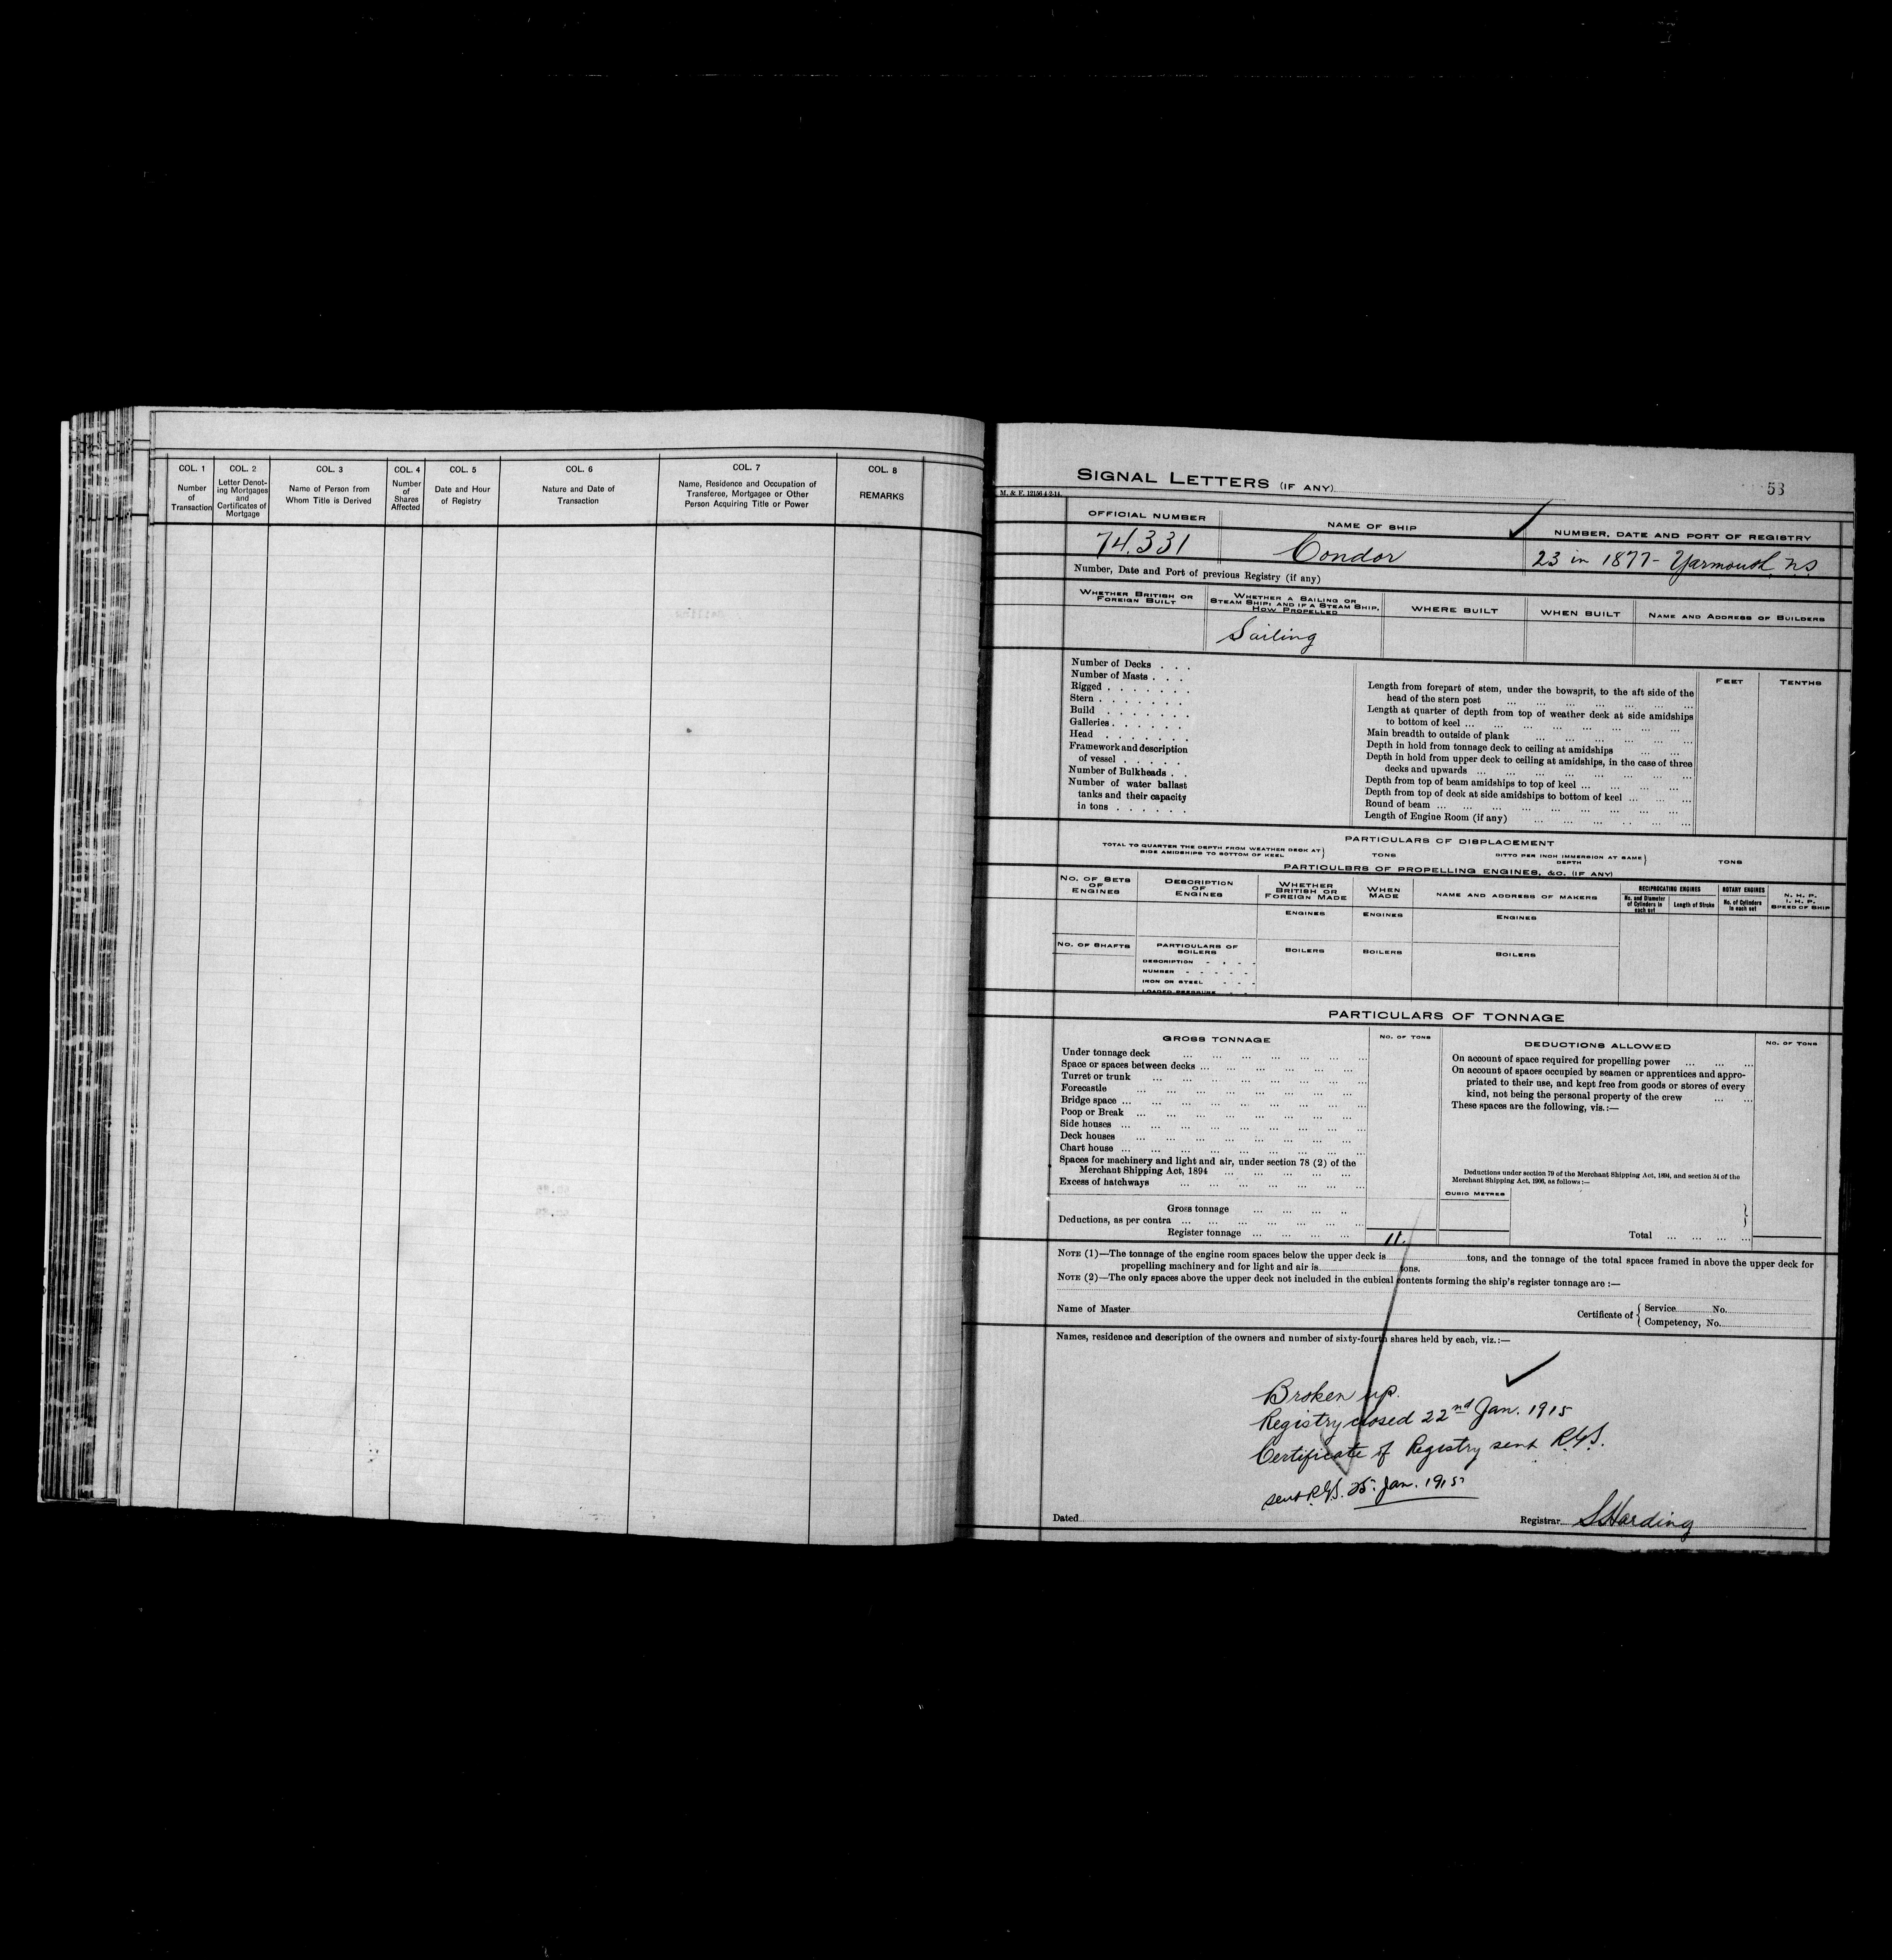 COL. 1
Number
of
Transaction
COL. 2
Letter Denot-
ing Mortgages
and
Certificates of
Mortgage
COL. 3
Name of Person from
Whom Title is Derived
COL. 4
Number
of
Shares
Affected
COL. 5
Date and Hour
of Registry
COL. 6
Nature and Date of
Transaction
COL. 7
Name, Residence and Occupation of
Transferee, Mortgagee or Other
Person Acquiring Title or Power
COL. 8
REMARKS
SIGNAL LETTERS (IF ANY)
53
M. & F. 12156 4-2-14.
OFFICIAL NUMBER
NAME OF SHIP
NUMBER, DATE AND PORT OF REGISTRY
74.331
Condor
23 in 1877 - Yarmouth NS
Number, Date and Port of previous Registry (if any)
WHETHER BRITISH OR
FOREIGN BUILT
WHETHER A SAILING OR
STEAM SHIP; AND IF A STEAM SHIP,
HOW PROPELLED
WHERE BUILT
WHEN BUILT
NAME AND ADDRESS OF BUILDERS
Sailing
Number of Decks . . .
Number of Masts . . .
Rigged . . . . . . .
Stern . . . . . . .
Build . . . . . . .
Galleries . . . . . .
Head . . . . . . .
Framework and description
of vessel . . . . . .
Number of Bulkheads . .
Number of water ballast
tanks and their capacity
in tons . . . . . .
FEET
TENTHS
Length from forepart of stem, under the bowsprit, to the aft side of the
head of the stern post
Length at quarter of depth from top of weather deck at side amidships
to bottom of keel
Main breadth to outside of plank
Depth in hold from tonnage deck to ceiling at amidships
Depth in hold from upper deck to ceiling at amidships, in the case of three
decks and upwards
Depth from top of beam amidships to top of keel
Depth from top of deck at side amidships to bottom of keel
Round of beam
Length of Engine Room (if any)
PARTICULARS OF DISPLACEMENT
TOTAL TO QUARTER THE DEPTH FROM WEATHER DECK AT
SIDE AMIDSHIPS TO BOTTOM OF KEEL
TONS
DITTO PER INCH IMMERSION AT SAME
DEPTH
TONS
PARTICULBRS OF PROPELLING ENGINES, &C. (IF ANY)
NO. OF SETS
OF
ENGINES
DESCRIPTION
OF
ENGINES
WHETHER
BRITISH OR
FOREIGN MADE
WHEN
MADE
NAME AND ADDRESS OF MAKERS
RECIPROCATING ENGINES
No. and Diameter
of Cylinders in
each set
Length of Stroke
ROTARY ENGINES
No. of Cylinders
in each set
N. H. P.
I. H. P.
SPEED OF SHIP
ENGINES
ENGINES
ENGINES
NO. OF SHAFTS
PARTICULARS OF
BOILERS
BOILERS
BOILERS
BOILERS
DESCRIPTION
NUMBER
IRON OR STEEL
LOADED PRESSURE
PARTICULARS OF TONNAGE
GROSS TONNAGE
NO. OF TONS
Under tonnage deck
Space or spaces between decks
Turret or trunk
Forecastle
Bridge space
Poop or Break
Side houses
Deck houses
Chart house
Spaces for machinery and light and air, under section 78 (2) of the
Merchant Shipping Act, 1894
Excess of hatchways
Gross tonnage
Deductions, as per contra
Register tonnage
11.
DEDUCTIONS ALLOWED
NO. OF TONS
On account of space required for propelling power
On account of spaces occupied by seamen or apprentices and appro-
priated to their use, and kept free from goods or stores of every
kind, not being the personal property of the crew
These spaces are the following, vis.:—
Deductions under section 79 of the Merchant Shipping Act, 1894, and section 54 of the
Merchant Shipping Act, 1906, as follows :—
CUBIC METRES
Total
NOTE (1)—The tonnage of the engine room spaces below the upper deck is tons, and the tonnage of the total spaces framed in above the upper deck for
propelling machinery and for light and air is tons.
NOTE (2)—The only spaces above the upper deck not included in the cubical contents forming the ship's register tonnage are :—
Name of Master
Certificate of { Service No.
Competency, No.
Names, residence and description of the owners and number of sixty-fourth shares held by each, viz.:—
Broken up.
Registry closed 22nd Jan. 1915
Certificate of Registry sent R.G.S.
sent R.G.S. 25. Jan. 1915
Dated
Registrar SHarding